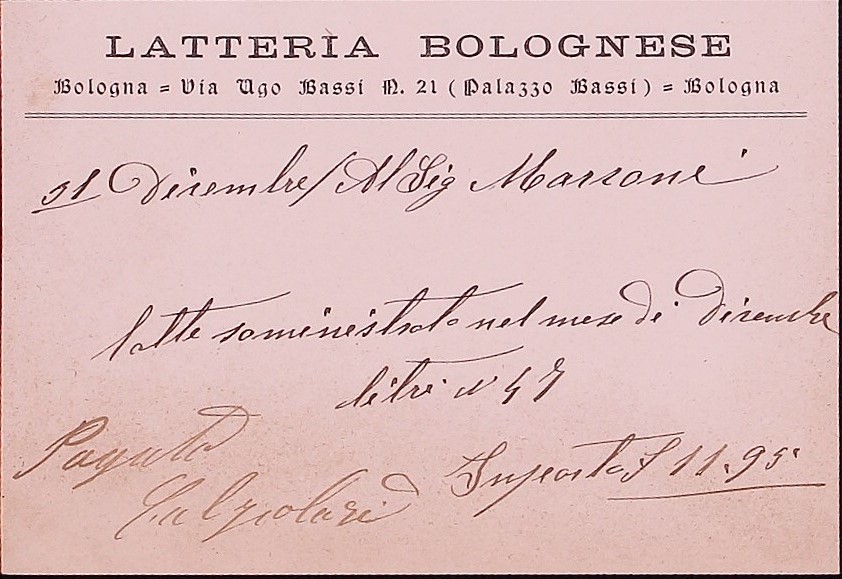 LATTERIA BOLOGNESE
Bologna = Via Ugo Bassi N. 21 (Palazzo Bassi) = Bologna
31 Dicembre / Al Sig Marconi
latte soministrato nel mese di Dicembre
litri N 47
Importo £ 11.95
Pagato
Calzolari